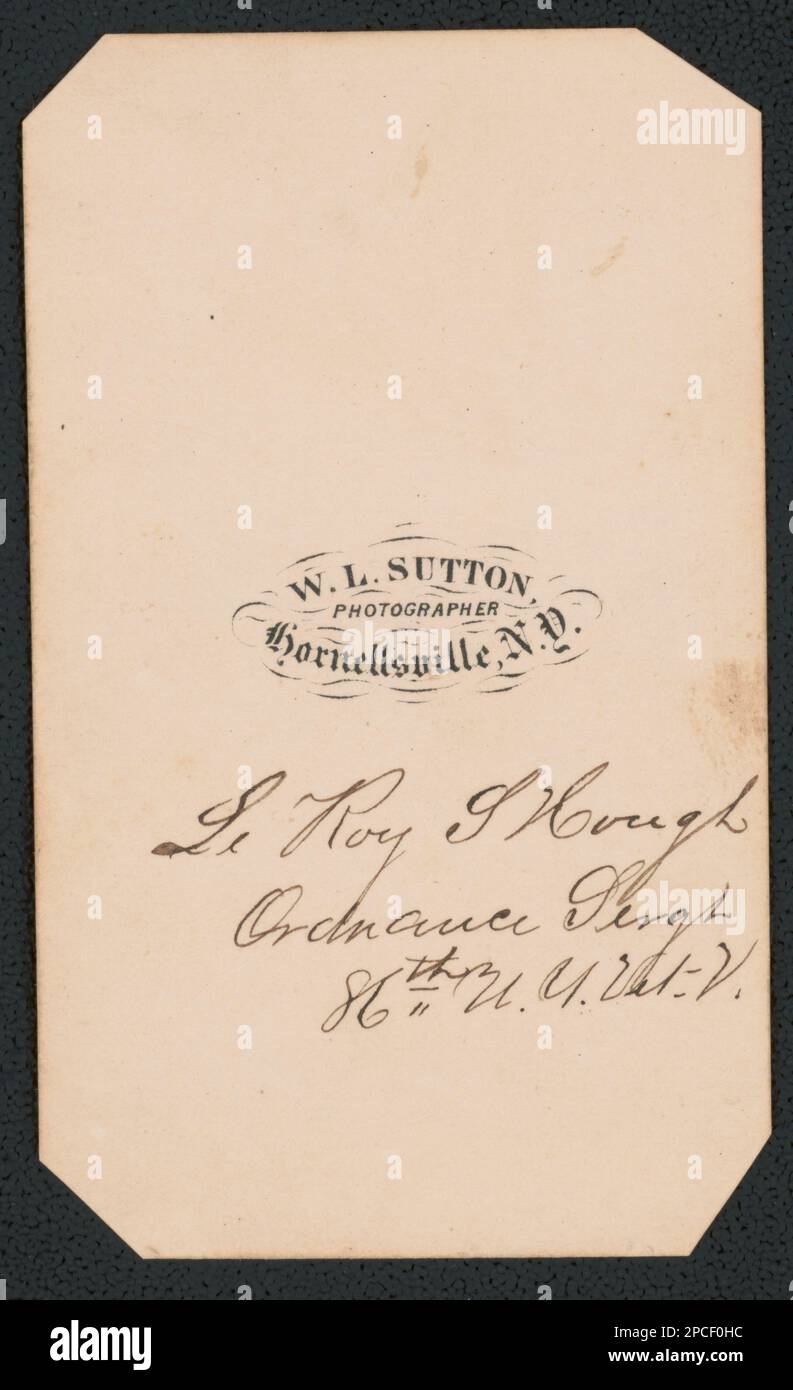 alamy
W. L. SUTTON,
PHOTOGRAPHER
Hornellsville, N.Y.
Le Roy S Hough
Ordnance Sergt
86th N. Y. Vet. V.
alamy
Image ID: 2PCF0HC
www.alamy.com